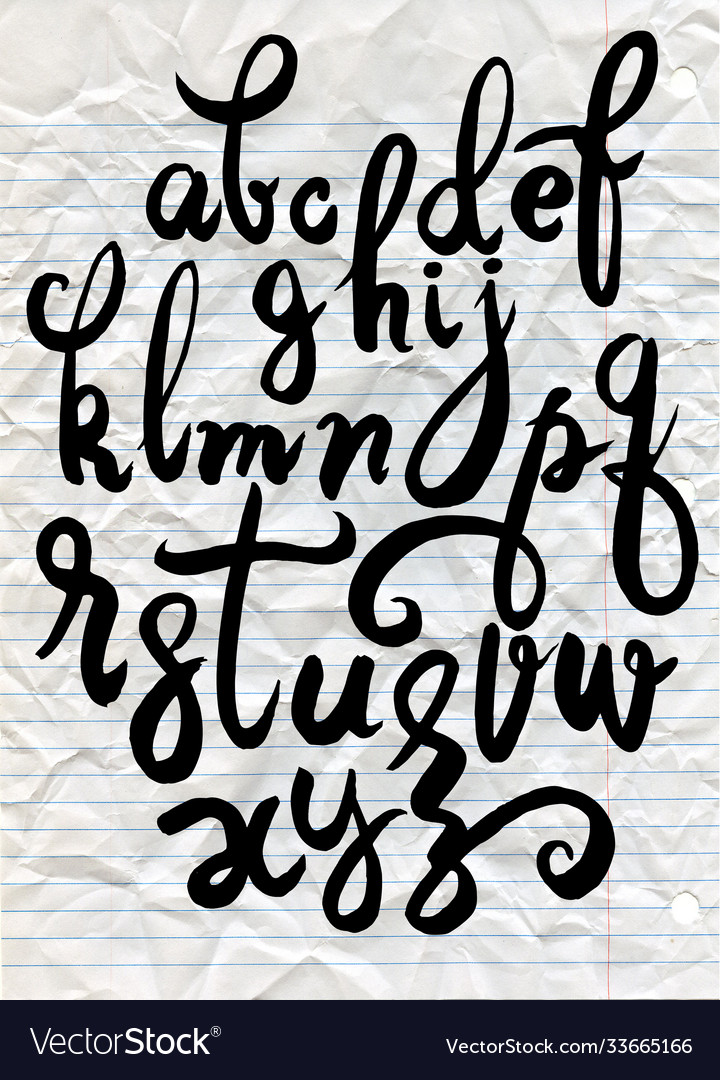 abcdef
ghij
klmnpq
rstuvw
xyz
VectorStock® VectorStock.com/33665166